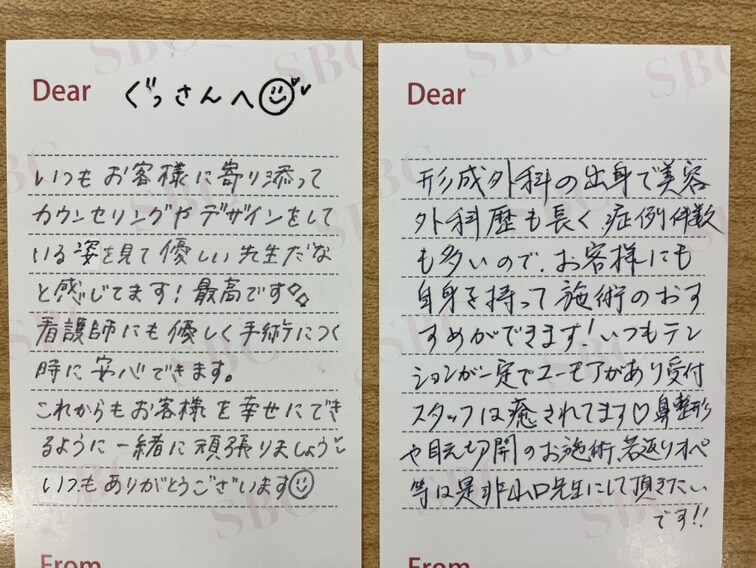 Dear ぐっさんへ
いつもお客様に寄り添って
カウンセリングやデザインをして
いる姿を見て優しい先生だな
と感じてます!最高です
看護師にも優しく手術につく
時に安心できます。
これからもお客様を幸せにでき
るように一緒に頑張りましょう
いつもありがとうございます
From
Dear
形成外科の出身で美容
外科歴も長く、症例件数
も多いので、お客様にも
自身を持って施術のおす
すめができます!いつもテン
ションが一定でユーモアがあり受付
スタッフは癒されてます♡鼻整形
や目元切開のお施術、若返りオペ
等は是非山口先生にして頂きたい
です!!
From
SBC